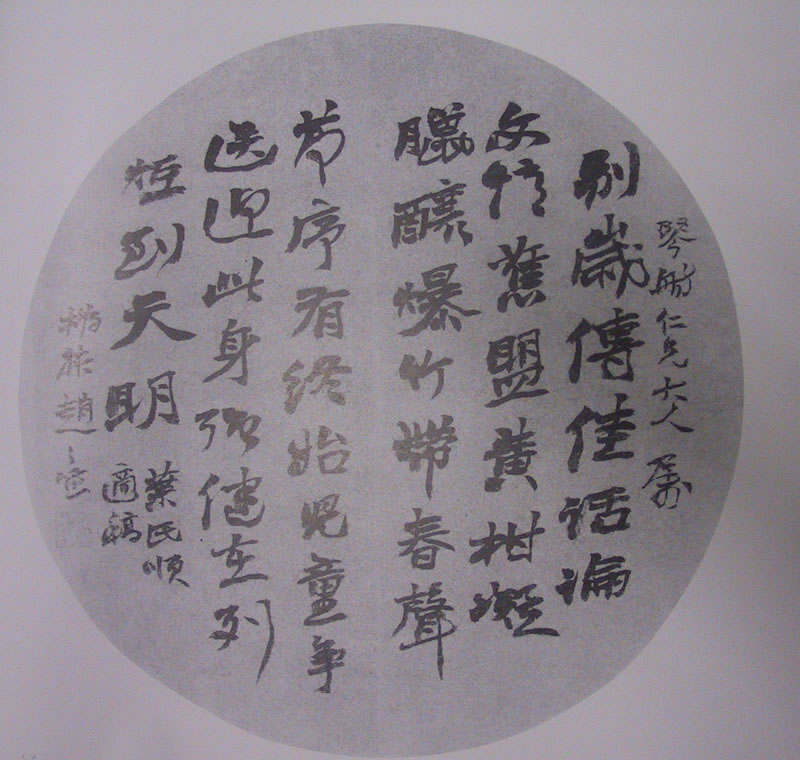 琴舫仁兄大人属
別歲傳佳話論
文情舊盟黃柑凝
臘釀爆竹帶春聲
節序有終始兒童爭
送迎此身強健在列
炬到天明
葉氏順
適稿
趙